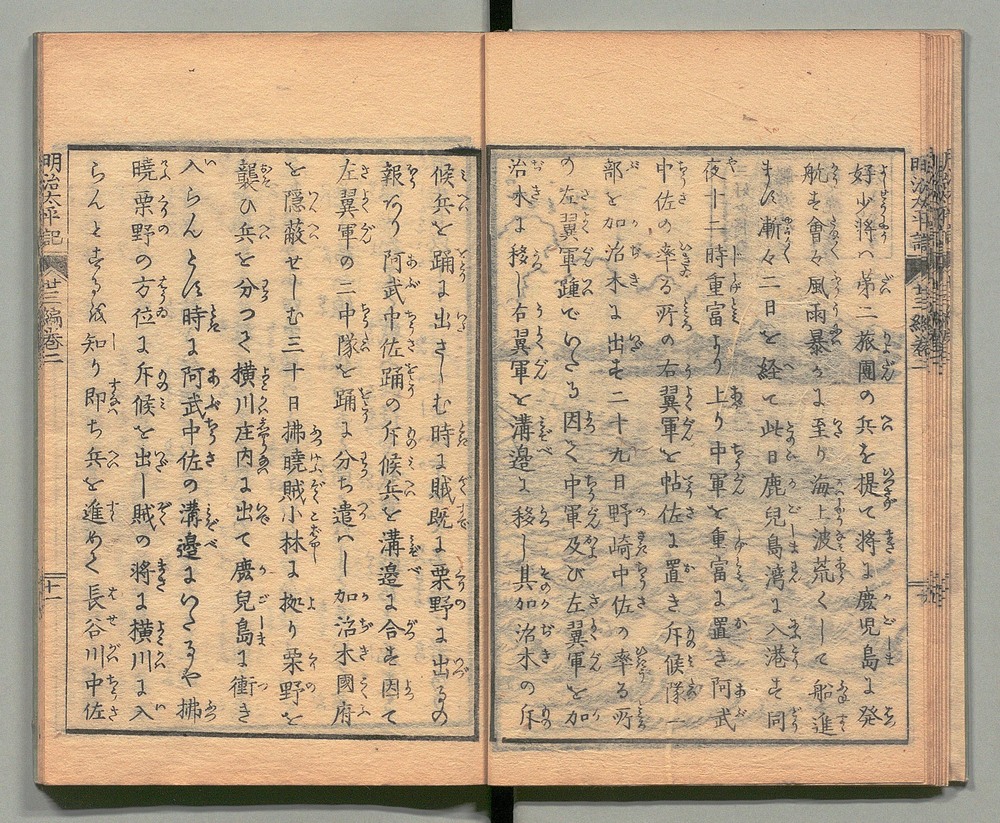 好少将ハ第二旅團の兵を提て将に鹿児島に発
航す會々風雨暴かに至り海上波荒くして船進
まず漸々二日を経て此日鹿兒島湾に入港す同
夜十二時重富より上り中軍を重富に置き阿武
中佐の率る所の右翼軍を帖佐に置き斥候隊一
部を加治木に出す二十九日野崎中佐の率る所
の左翼軍踵でいたる因て中軍及び左翼軍を加
治木に移し右翼軍を溝邉に移し其加治木の斥
候兵を踊に出さしむ時に賊既に栗野に出るの
報あり阿武中佐踊の斥候兵を溝邉に合す因て
左翼軍の二中隊を踊に分ち遣ハし加治木國府
を隠蔽せしむ三十日拂曉賊小林に拠り栗野を
襲ひ兵を分つて横川庄内に出て鹿兒島に衝き
入らんとす時に阿武中佐の溝邉にいたるや拂
曉栗野の方位に斥候を出し賊の将に横川に入
らんとするを知り即ち兵を進めく長谷川中佐
明治太平記
廿三編巻二
十一